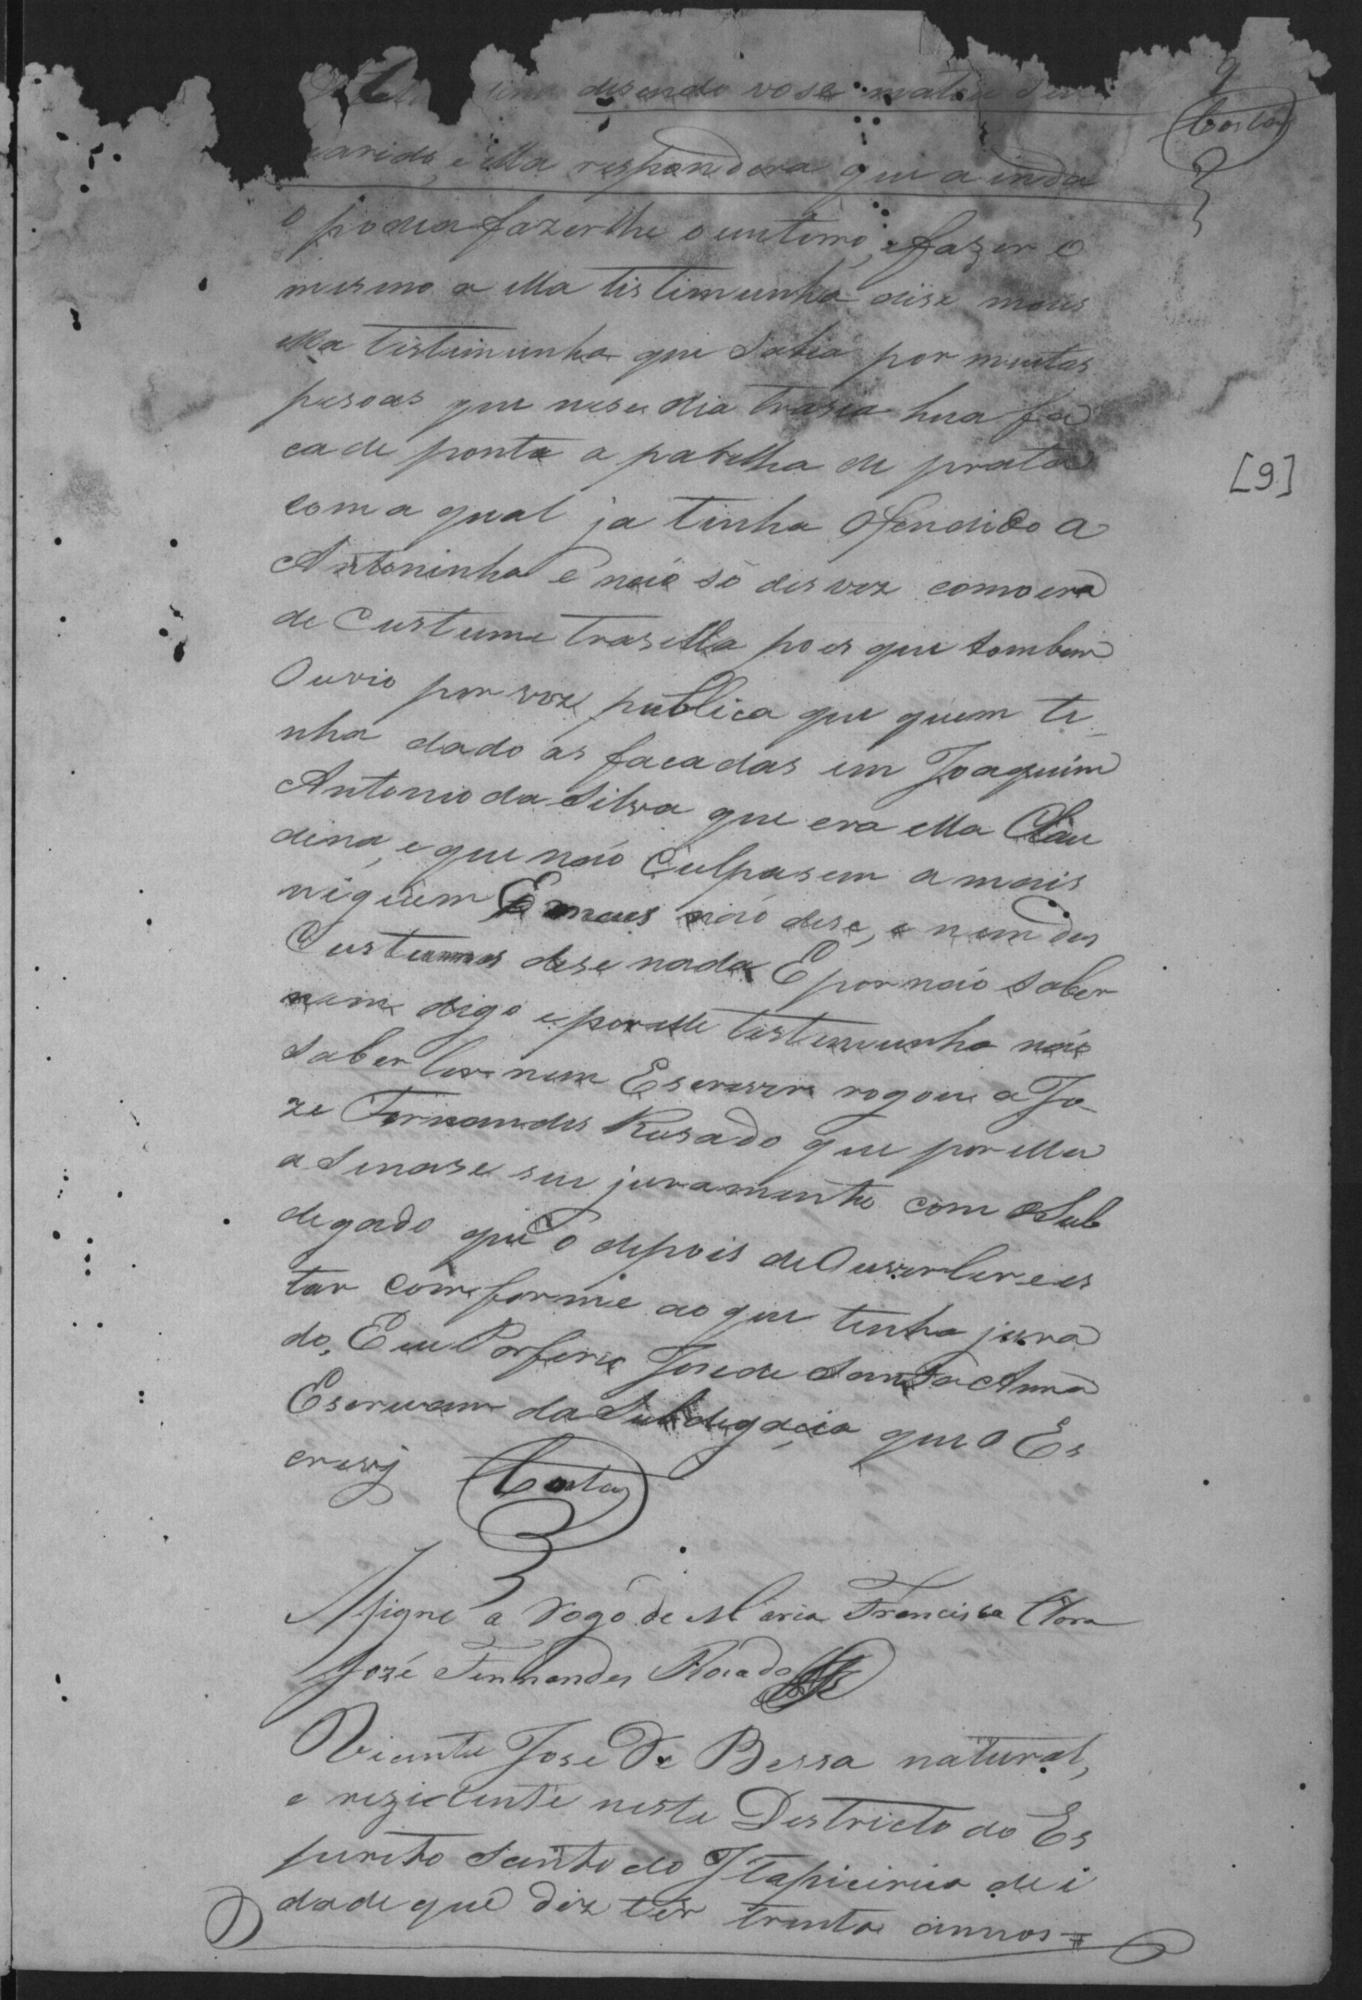 9
Costa
disendo vose matou seu
marido, e ella respondera que ainda
podia fazerlhe o enterro, e fazer o
mesmo a ella tistimunha dise mais
ella tistimunha que sabia por muitas
pesoas que nese dia trasia hua fa
ca de ponta aparelha de prata
com a qual ja tinha ofendido a
Antoninha e não só desvez como era
de Custume trasella pois que tombem
Ouvio por voz publica que quem ti_
nha dado as facadas em Joaquim
Antonio da Silva que era ella Clau
dina, e que não Culpasem a mais
niguem E mais não dise, e nem dos
Custumes dise nada E por não saber
nem digo e por elle tistimunha não
saber ler nem Escrever rogou a Jo_
ze Fernandes Rusado que por ella
asinase seu juramento com o Sub
degado que o depois de Ouvir ler e es
tar comforme ao que tinha jura
do, Eu Porfirio Jose de Santa Anna
Escrivam da Subdegacia que o Es
crevj Costa
Asigno a rogo de Maria Francisca Clara
José Fernandes Rosado
Vicente Jose de Bessa natural,
e rezidente neste Districto do Es
purito Santo do Itapicirica de i
dade que diz ter trinta annos=
[9]